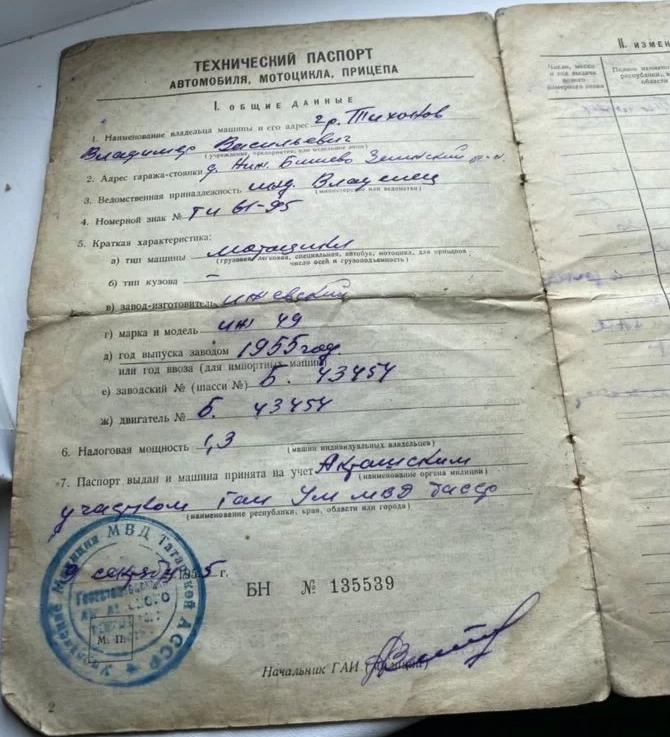 ТЕХНИЧЕСКИЙ ПАСПОРТ
АВТОМОБИЛЯ, МОТОЦИКЛА, ПРИЦЕПА
I. ОБЩИЕ ДАННЫЕ
1. Наименование владельца машины и его адрес гр. Тихонов
Владимир Васильевич
(учреждение, предприятие, или отдельное лицо)
2. Адрес гаража-стоянки д. Ниж. Бишево Заинский р-н
3. Ведомственная принадлежность инд. Владелец
(министерство или ведомство)
4. Номерной знак № ТИ 61-95
5. Краткая характеристика:
а) тип машины мотоцикл
(грузовая, легковая, специальная, автобус, мотоцикл, для прицепов число осей и грузоподъемность)
б) тип кузова —
в) завод-изготовитель ижевский
г) марка и модель иж 49
д) год выпуска заводом 1955 год.
или год ввоза (для импортных машин)
е) заводский № (шасси №) Б. 43454
ж) двигатель № Б. 43454
6. Налоговая мощность 1,3
(машин индивидуальных владельцев)
7. Паспорт выдан и машина принята на учет Акташским
(наименование органа милиции)
участком Гаи Ум МВД Тасср
(наименование республики, края, области или города)
МВД Татарской АССР
М. П.
195 5 г.
БН № 135539
Начальник ГАИ
2
II. ИЗМЕН
Число, месяц
и год выдачи
нового
номерного знака